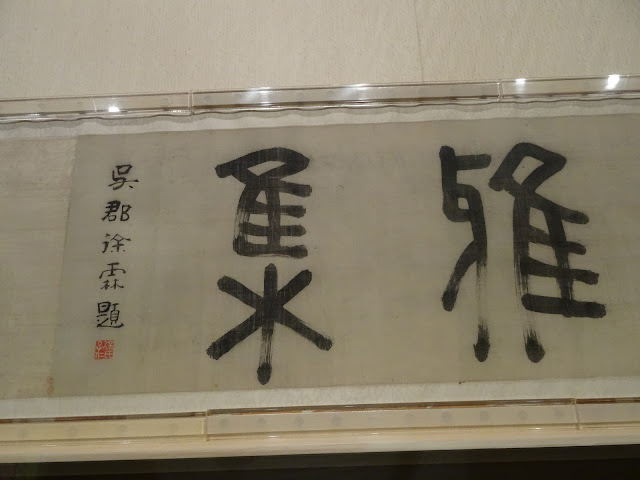 雅集
吳郡徐霖題